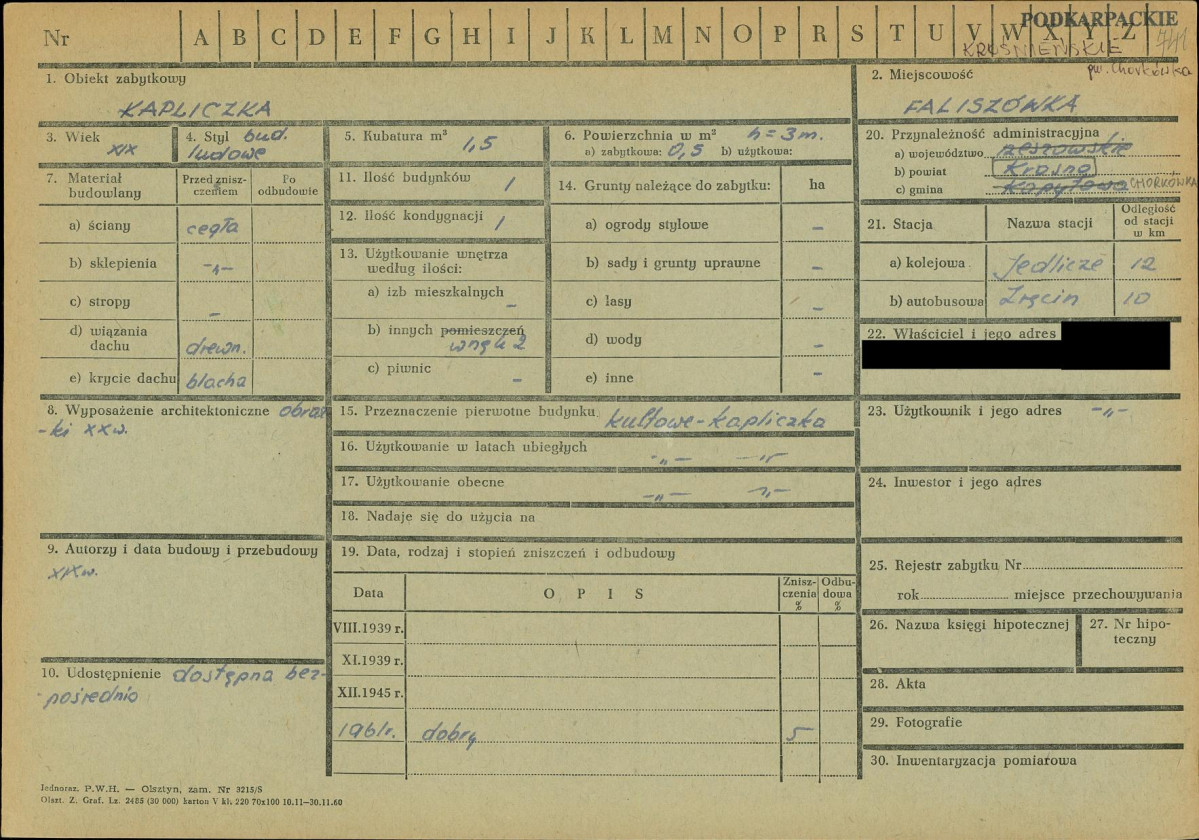 PODKARPACKIE
Nr A B C D E F G H I J K L M N O P R S T U V W X Y Z 741
KROŚNIEŃSKIE
gw. Chorkówka
1. Obiekt zabytkowy
KAPLICZKA
2. Miejscowość
FALISZÓWKA
3. Wiek
XIX
4. Styl bud.
ludowe
5. Kubatura m³ 1,5
6. Powierzchnia w m² h = 3 m.
a) zabytkowa: 0,5 b) użytkowa:
7. Materiał budowlany
Przed znisz-
czeniem
Po
odbudowie
a) ściany cegła
b) sklepienia -„-
c) stropy -
d) wiązania
dachu drewn.
e) krycie dachu blacha
8. Wyposażenie architektoniczne obraz-
-ki XX w.
9. Autorzy i data budowy i przebudowy
XIX w.
10. Udostępnienie dostępna bez-
-pośrednio
11. Ilość budynków 1
12. Ilość kondygnacji 1
13. Użytkowanie wnętrza
według ilości:
a) izb mieszkalnych -
b) innych pomieszczeń
wnęk 2
c) piwnic -
14. Grunty należące do zabytku: ha
a) ogrody stylowe -
b) sady i grunty uprawne -
c) lasy -
d) wody -
e) inne -
15. Przeznaczenie pierwotne budynku kultowe - kapliczka
16. Użytkowanie w latach ubiegłych -„- -„-
17. Użytkowanie obecne -„- -„-
18. Nadaje się do użycia na
19. Data, rodzaj i stopień zniszczeń i odbudowy
Data O P I S Znisz-
czenia
% Odbu-
dowa
%
VIII.1939 r.
XI.1939 r.
XII.1945 r.
1961r. dobry 5
20. Przynależność administracyjna
a) województwo rzeszowskie
b) powiat Krosno
c) gmina Kopytowa CHORKÓWKA
21. Stacja Nazwa stacji Odległość
od stacji
w km
a) kolejowa Jedlicze 12
b) autobusowa Zręcin 10
22. Właściciel i jego adres
23. Użytkownik i jego adres -„-
24. Inwestor i jego adres
25. Rejestr zabytku Nr
rok miejsce przechowywania
26. Nazwa księgi hipotecznej
27. Nr hipo-
teczny
28. Akta
29. Fotografie
30. Inwentaryzacja pomiarowa
Jednoraz. P.W.H. — Olsztyn, zam. Nr 3215/S
Olszt. Z. Graf. Lz. 2485 (30 000) karton V kl. 220 70x100 10.11—30.11.60